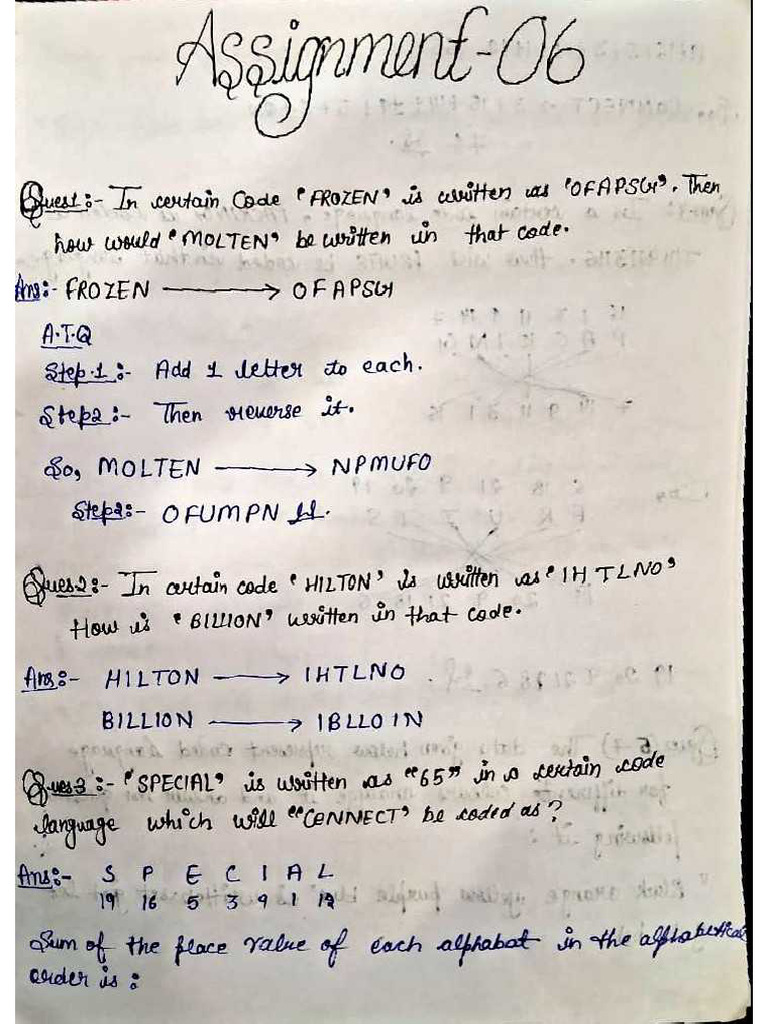 Assignment-06
Ques1:- In certain Code "FROZEN" is written as "OFAPSG". Then
how would "MOLTEN" be written in that code.
Ans:- FROZEN → OFAPSG
A.T.Q
Step.1:- Add 1 letter to each.
Step2:- Then reverse it.
So, MOLTEN → NPMUFO
Step2:- OFUMPN
Ques2:- In certain code "HILTON" is written as "IHTLNO"
How is "BILLION" written in that code.
Ans:- HILTON → IHTLNO .
BILLION → IBLLOIN
Ques3:- "SPECIAL" is written as "65" in a certain code
language which will "CONNECT" be coded as?
Ans:- S P E C I A L
19 16 5 3 9 1 12
Sum of the place value of each alphabat in the alphabetical
order is :